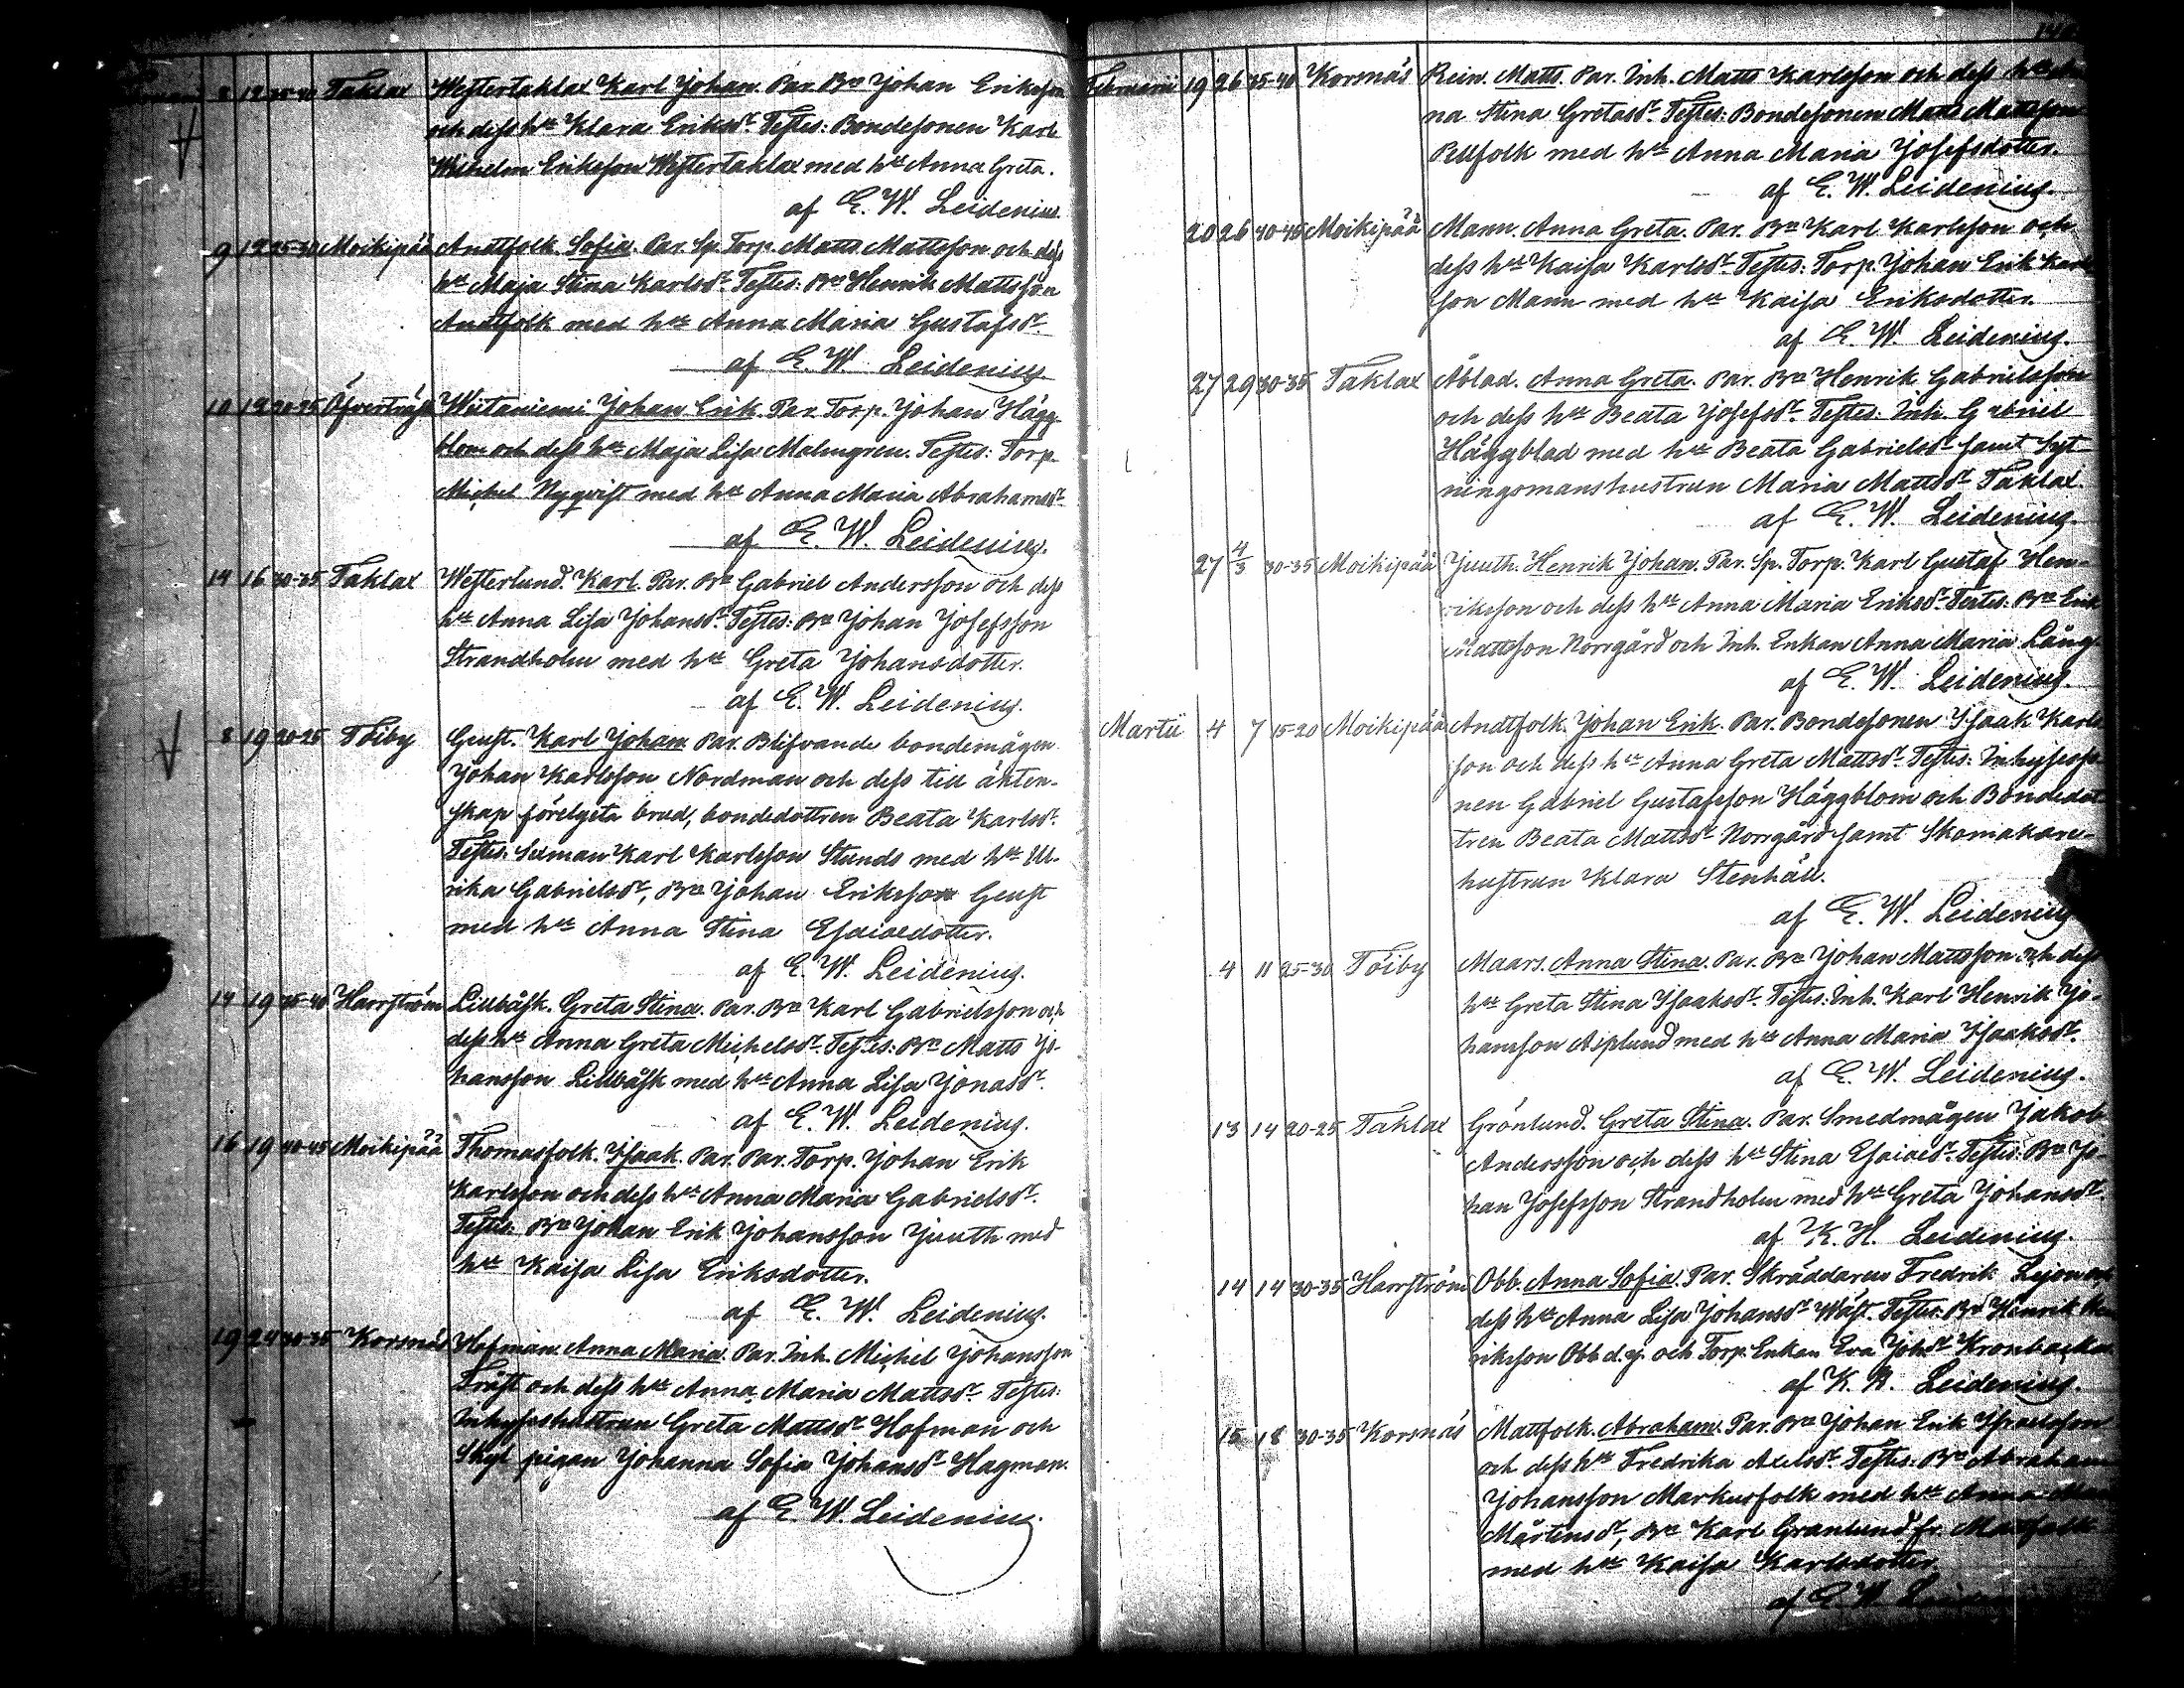 8 12 Taklax Westertaklax Karl Johan. Par. Bn Johan Eriksson
och dess hru Klara Eriksdr. Testes: Bondesonen Karl
Wilhelm Eriksson Westertaklax med hru Anna Greta.
af E. W. Leidenius.
9 12 25-30 Moikipää Andtfolk. Sofia. Par. Sp. Torp. Matts Mattsson och dess
hru Maja Stina Karlsdr. Testes: Bn Henrik Mattsson
Andtfolk med hru Anna Maria Gustafsdr.
af E. W. Leidenius
10 12 Öfverträsk Wiitaniemi Johan Erik. Par. Torp. Johan Hägg-
blom och dess hru Maja Lisa Malmgren. Testes: Torp.
Michel Nyqvist med hru Anna Maria Abrahamsdr.
af E. W. Leidenius.
14 16 30-35 Taklax Westerlund. Karl. Par. Bn Gabriel Andersson och dess
hru Anna Lisa Johansdr. Testes: Bn Johan Josefsson
Strandholm med hru Greta Johansdotter.
af E. W. Leidenius.
8 19 20-25 Töiby Geust. Karl Johan. Par. Blifvande bondemågen
Johan Karlsson Nordman och dess till äkten-
skap förelgita brud, bondedottren Beata Karlsdr.
Testes: Sexman Karl Karlsson Stunds med hru Ul-
rika Gabrielsdr, Bn Johan Eriksson Geust
med hru Anna Stina Esaiaedotter.
af E. W. Leidenius.
14 19 35-40 Harrström Lillbåsk. Greta Stina. Par. Bn Karl Gabrielsson och
dess hru Anna Greta Michelsdr. Testes: Bn Matts Jo-
hansson Lillbåsk med hru Anna Lisa Jonasdr.
af E. W. Leidenius.
16 19 40-45 Moikipää Thomasfolk. Isaak. Par. Par. Torp. Johan Erik
Karlsson och dess hru Anna Maria Gabrielsdr.
Testes: Bn Johan Erik Johansson Juuth med
hru Kaisa Lisa Eriksdotter.
af E. W. Leidenius.
19 24 30-35 Korsnäs Hofman. Anna Maria. Par. Inh. Michel Johansson
Träst och dess hru Anna Maria Mattsdr. Testes:
Inhyseshustrun Greta Mattsdr Hofman och
Skyl pigan Johanna Sofia Johansdr Hagman.
af E. W. Leidenius.
Februarii 19 26 35-40 Korsnäs Rein. Matts. Par. Inh. Matts Karlsson och dess
na Stina Gretasdr. Testes: Bondesonen Matts Mattsson
Pellfolk med hru Anna Maria Josefsdotter.
af E. W. Leidenius
20 26 40-45 Moikipää Mann. Anna Greta. Par. Bn Karl Karlsson och
dess hru Kaisa Karlsdr. Testes: Torp. Johan Erik Karls
son Mann med hru Kaisa Eriksdotter.
af E. W. Leidenius.
27 29 30-35 Taklax Åblad. Anna Greta. Par. Bn Henrik Gabrielsson
och dess hru Beata Josefsdr. Testes: Inh. Gabriel
Häggblad med hru Beata Gabrielsdr samt Syt-
ningsmanshustrun Maria Mattsdr Taklax.
af E. W. Leidenius.
27 4/3 30-35 Moikipää Juuth. Henrik Johan. Par. Sp. Torp. Karl Gustaf Hen-
riksson och dess hru Anna Maria Eriksdr. Testes: Bn Erik
Mattsson Norrgård och Inh. Enkan Anna Maria Lång.
af E. W. Leidenius.
Martii 4 7 15-20 Moikipää Andtfolk. Johan Erik. Par. Bondesonen Isaak Karls
son och dess hru Anna Greta Mattsdr. Testes: Inhysesso-
nen Gabriel Gustafsson Häggblom och Bondedot
tren Beata Mattsdr Norrgård samt Skomakare-
hustrun Klara Stenhäll.
af E. W. Leidenius
4 11 25-30 Töiby Maars. Anna Stina. Par. Bn Johan Mattsson och dess
hru Greta Stina Isaaksdr. Testes: Inh. Karl Henrik Jo-
hansson Asplund med hru Anna Maria Isaaksdr.
af E. W. Leidenius.
13 14 20-25 Taklax Grönlund. Greta Stina. Par. Smedmågen Jakob
Andersson och dess hru Stina Esaiaedr. Testes: Bn Jo-
han Josefsson Strandholm med hru Greta Johansdr.
af K. H. Leidenius.
14 14 30-35 Harrström Obb. Anna Sofia. Par. Skräddaren Fredrik Lejon och
dess hru Anna Lisa Johansdr Wäst. Testes: Bn Henrik Hen
riksson Obb d.y. och Torp. Enkan Eva Johsdr Kronbacka
af K. H. Leidenius.
15 18 30-35 Korsnäs Mattfolk. Abraham. Par. Bn Johan Erik Israelsson
och dess hru Fredrika Axelsdr. Testes: Bn Abraham
Johansson Markusfolk med hru Anna
Mårtensdr, Bn Karl Granlund fr. Mattfolk
med hru Kaisa Karlsdotter.
af E. W.